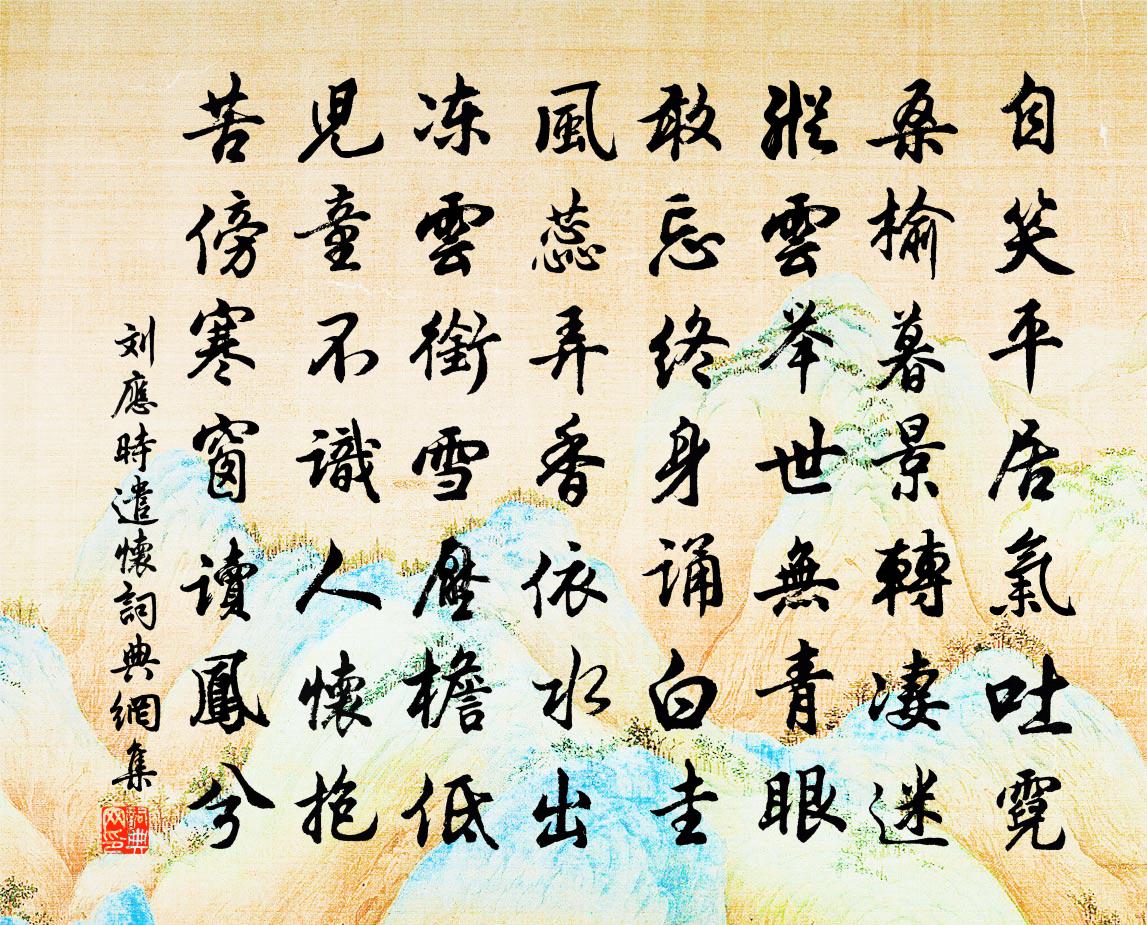 自笑平居氣吐霓
桑榆暮景轉凄迷
縱雲举世無青眼
敢忘终身诵白圭
風蕊弄香依水出
冻雲銜雪壓檐低
児童不識人懷抱
苦傍寒窗讀鳳兮
刘應時遣懷詞典網集